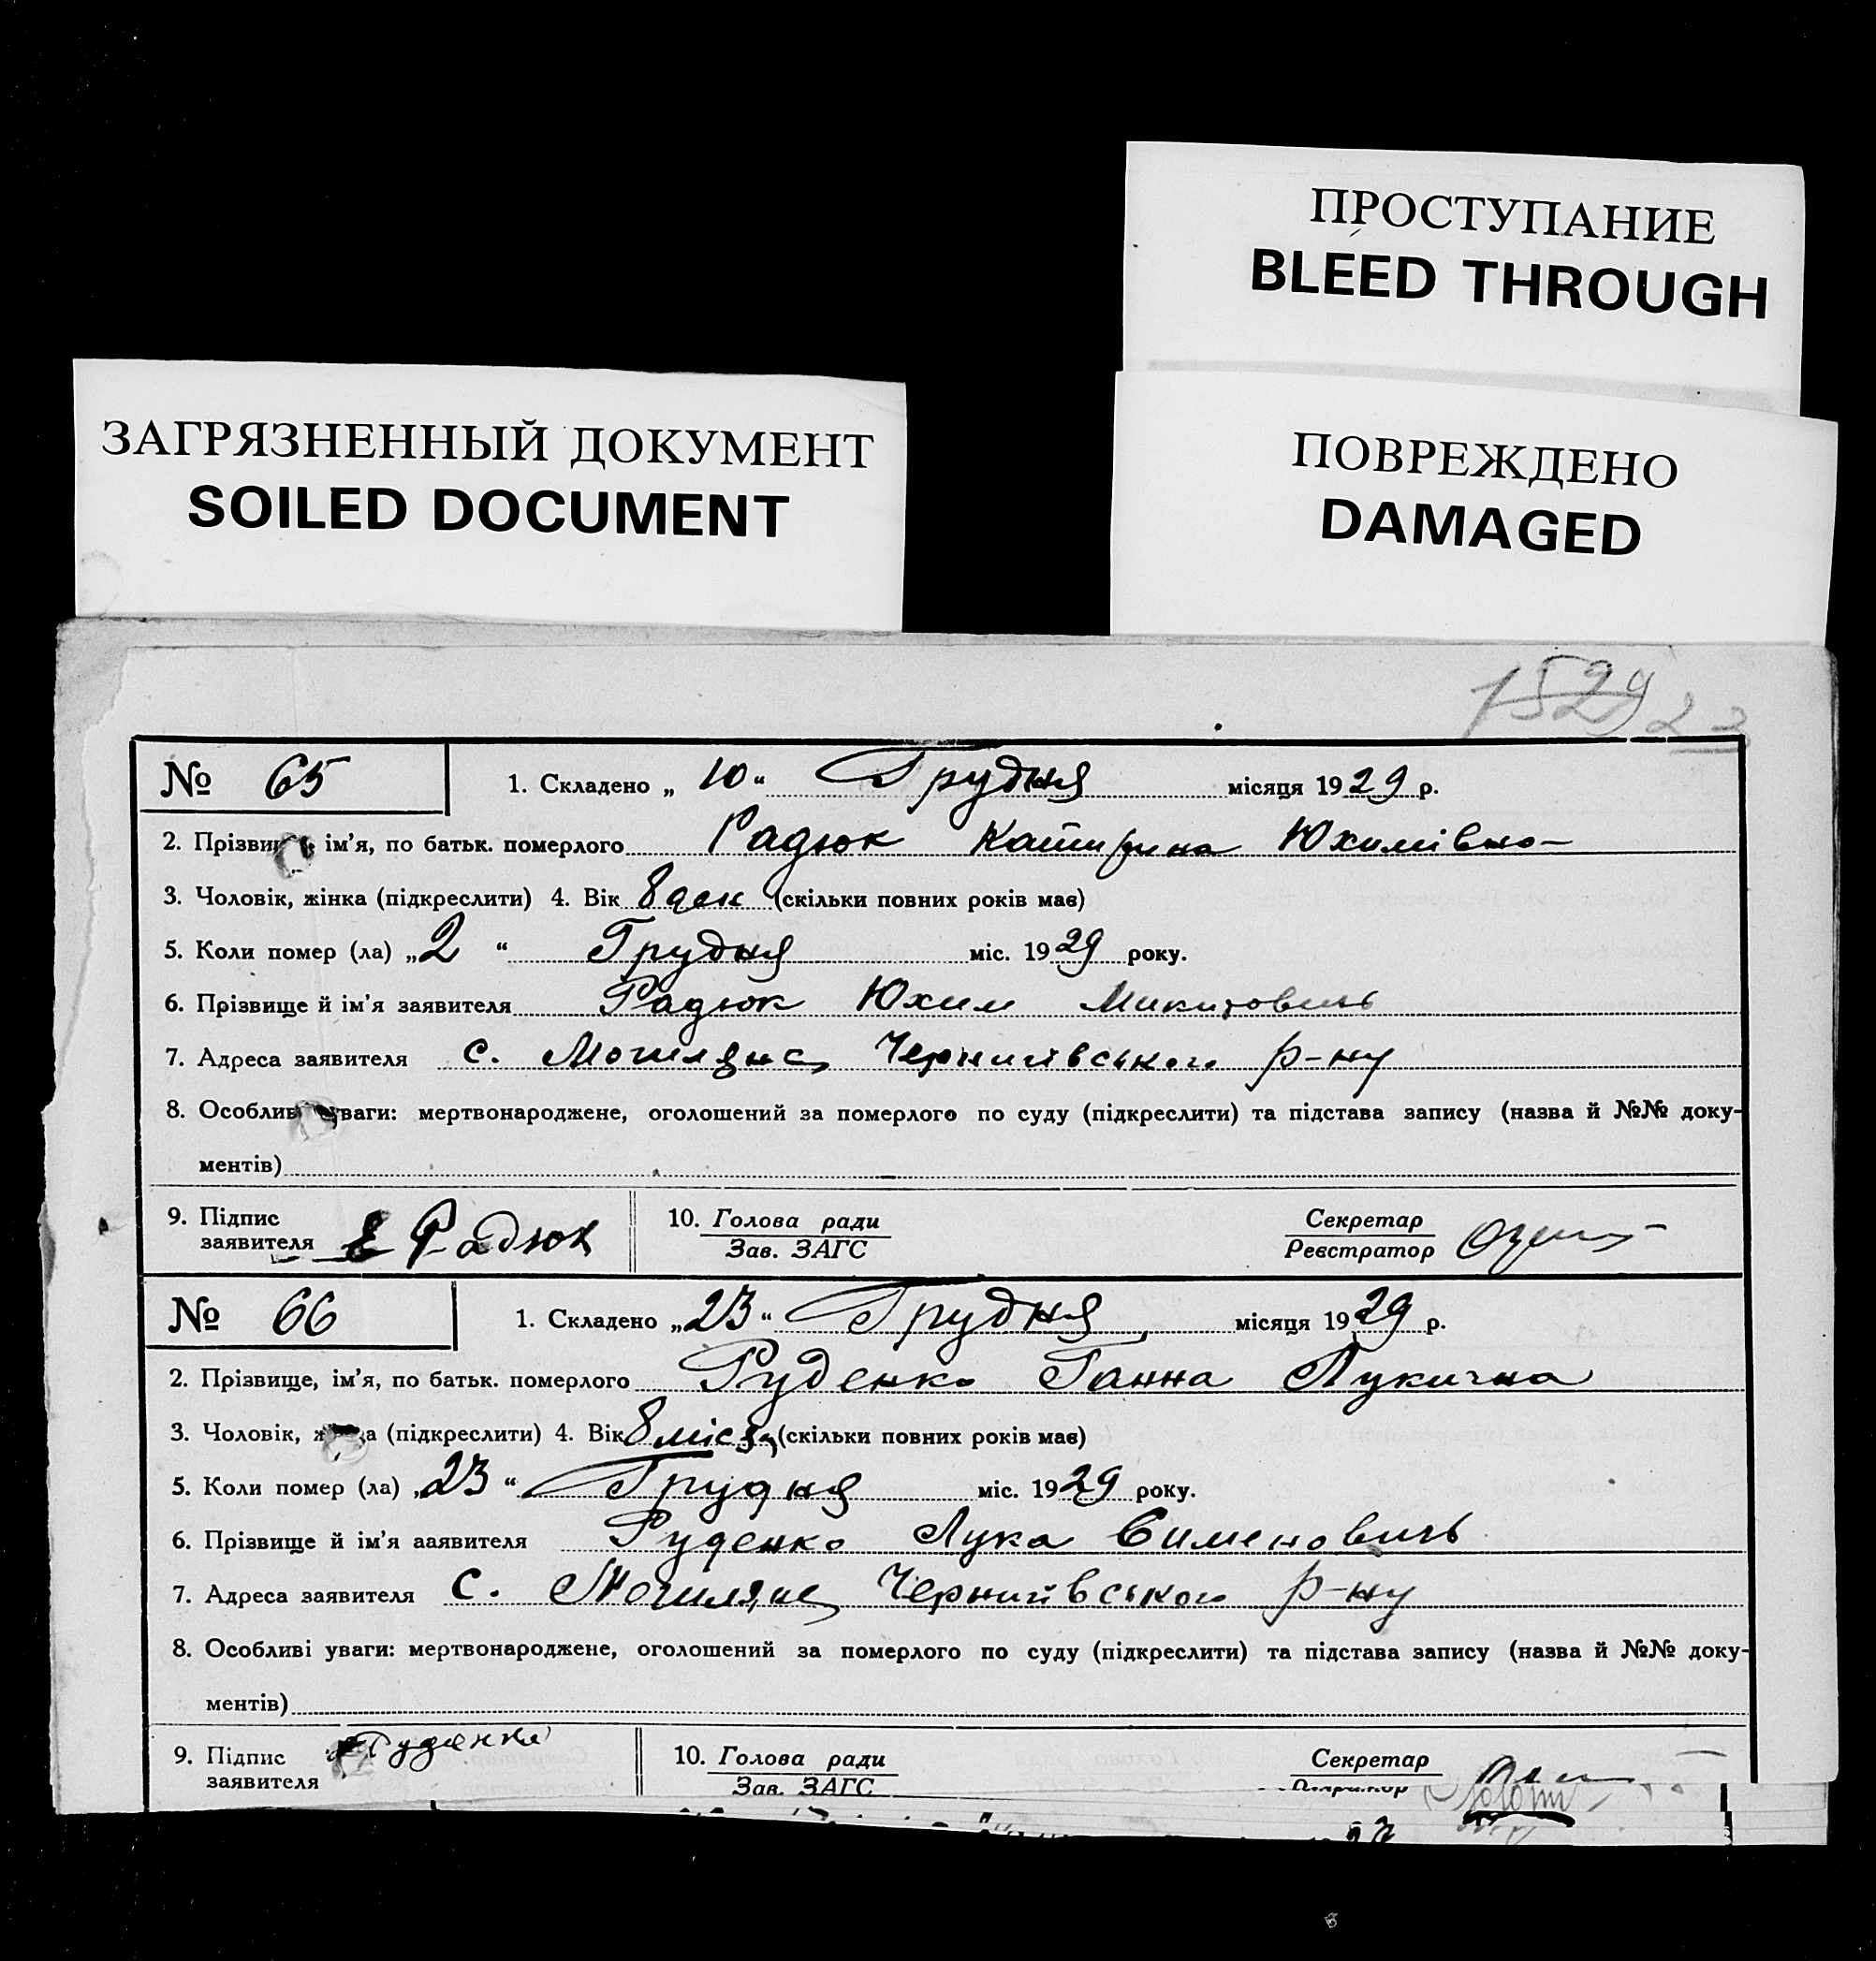 ПРОСТУПАНИЕ
BLEED THROUGH
ЗАГРЯЗНЕННЫЙ ДОКУМЕНТ
SOILED DOCUMENT
ПОВРЕЖДЕНО
DAMAGED
№ 65 1. Складено „ 10 “ Грудня місяця 1929 р.
2. Прізвище, ім'я, по батьк. померлого Радюк Катирина Юхимівна
3. Чоловік, жінка (підкреслити) 4. Вік 8 (скільки повних років має)
5. Коли помер (ла) „ 2 “ Грудня міс. 1929 року.
6. Прізвище й ім'я заявителя Радюк Юхим Микитович
7. Адреса заявителя с. Чернигівського р-ну
8. Особливі уваги: мертвонароджене, оголошений за померлого по суду (підкреслити) та підстава запису (назва й №№ доку-
ментів)
9. Підпис заявителя Е Радюк 10. Голова ради Зав. ЗАГС Секретар Реєстратор
№ 66 1. Складено „ 23 “ Грудня місяця 1929 р.
2. Прізвище, ім'я, по батьк. померлого Руденко Ганна Лукична
3. Чоловік, жінка (підкреслити) 4. Вік 8 місяц (скільки повних років має)
5. Коли помер (ла) „ 23 “ Грудня міс. 1929 року.
6. Прізвище й ім'я заявителя Руденко Лука Сименович
7. Адреса заявителя с. Чернигівського р-ну
8. Особливі уваги: мертвонароджене, оголошений за померлого по суду (підкреслити) та підстава запису (назва й №№ доку-
ментів)
9. Підпис заявителя Руденко 10. Голова ради Зав. ЗАГС Секретар